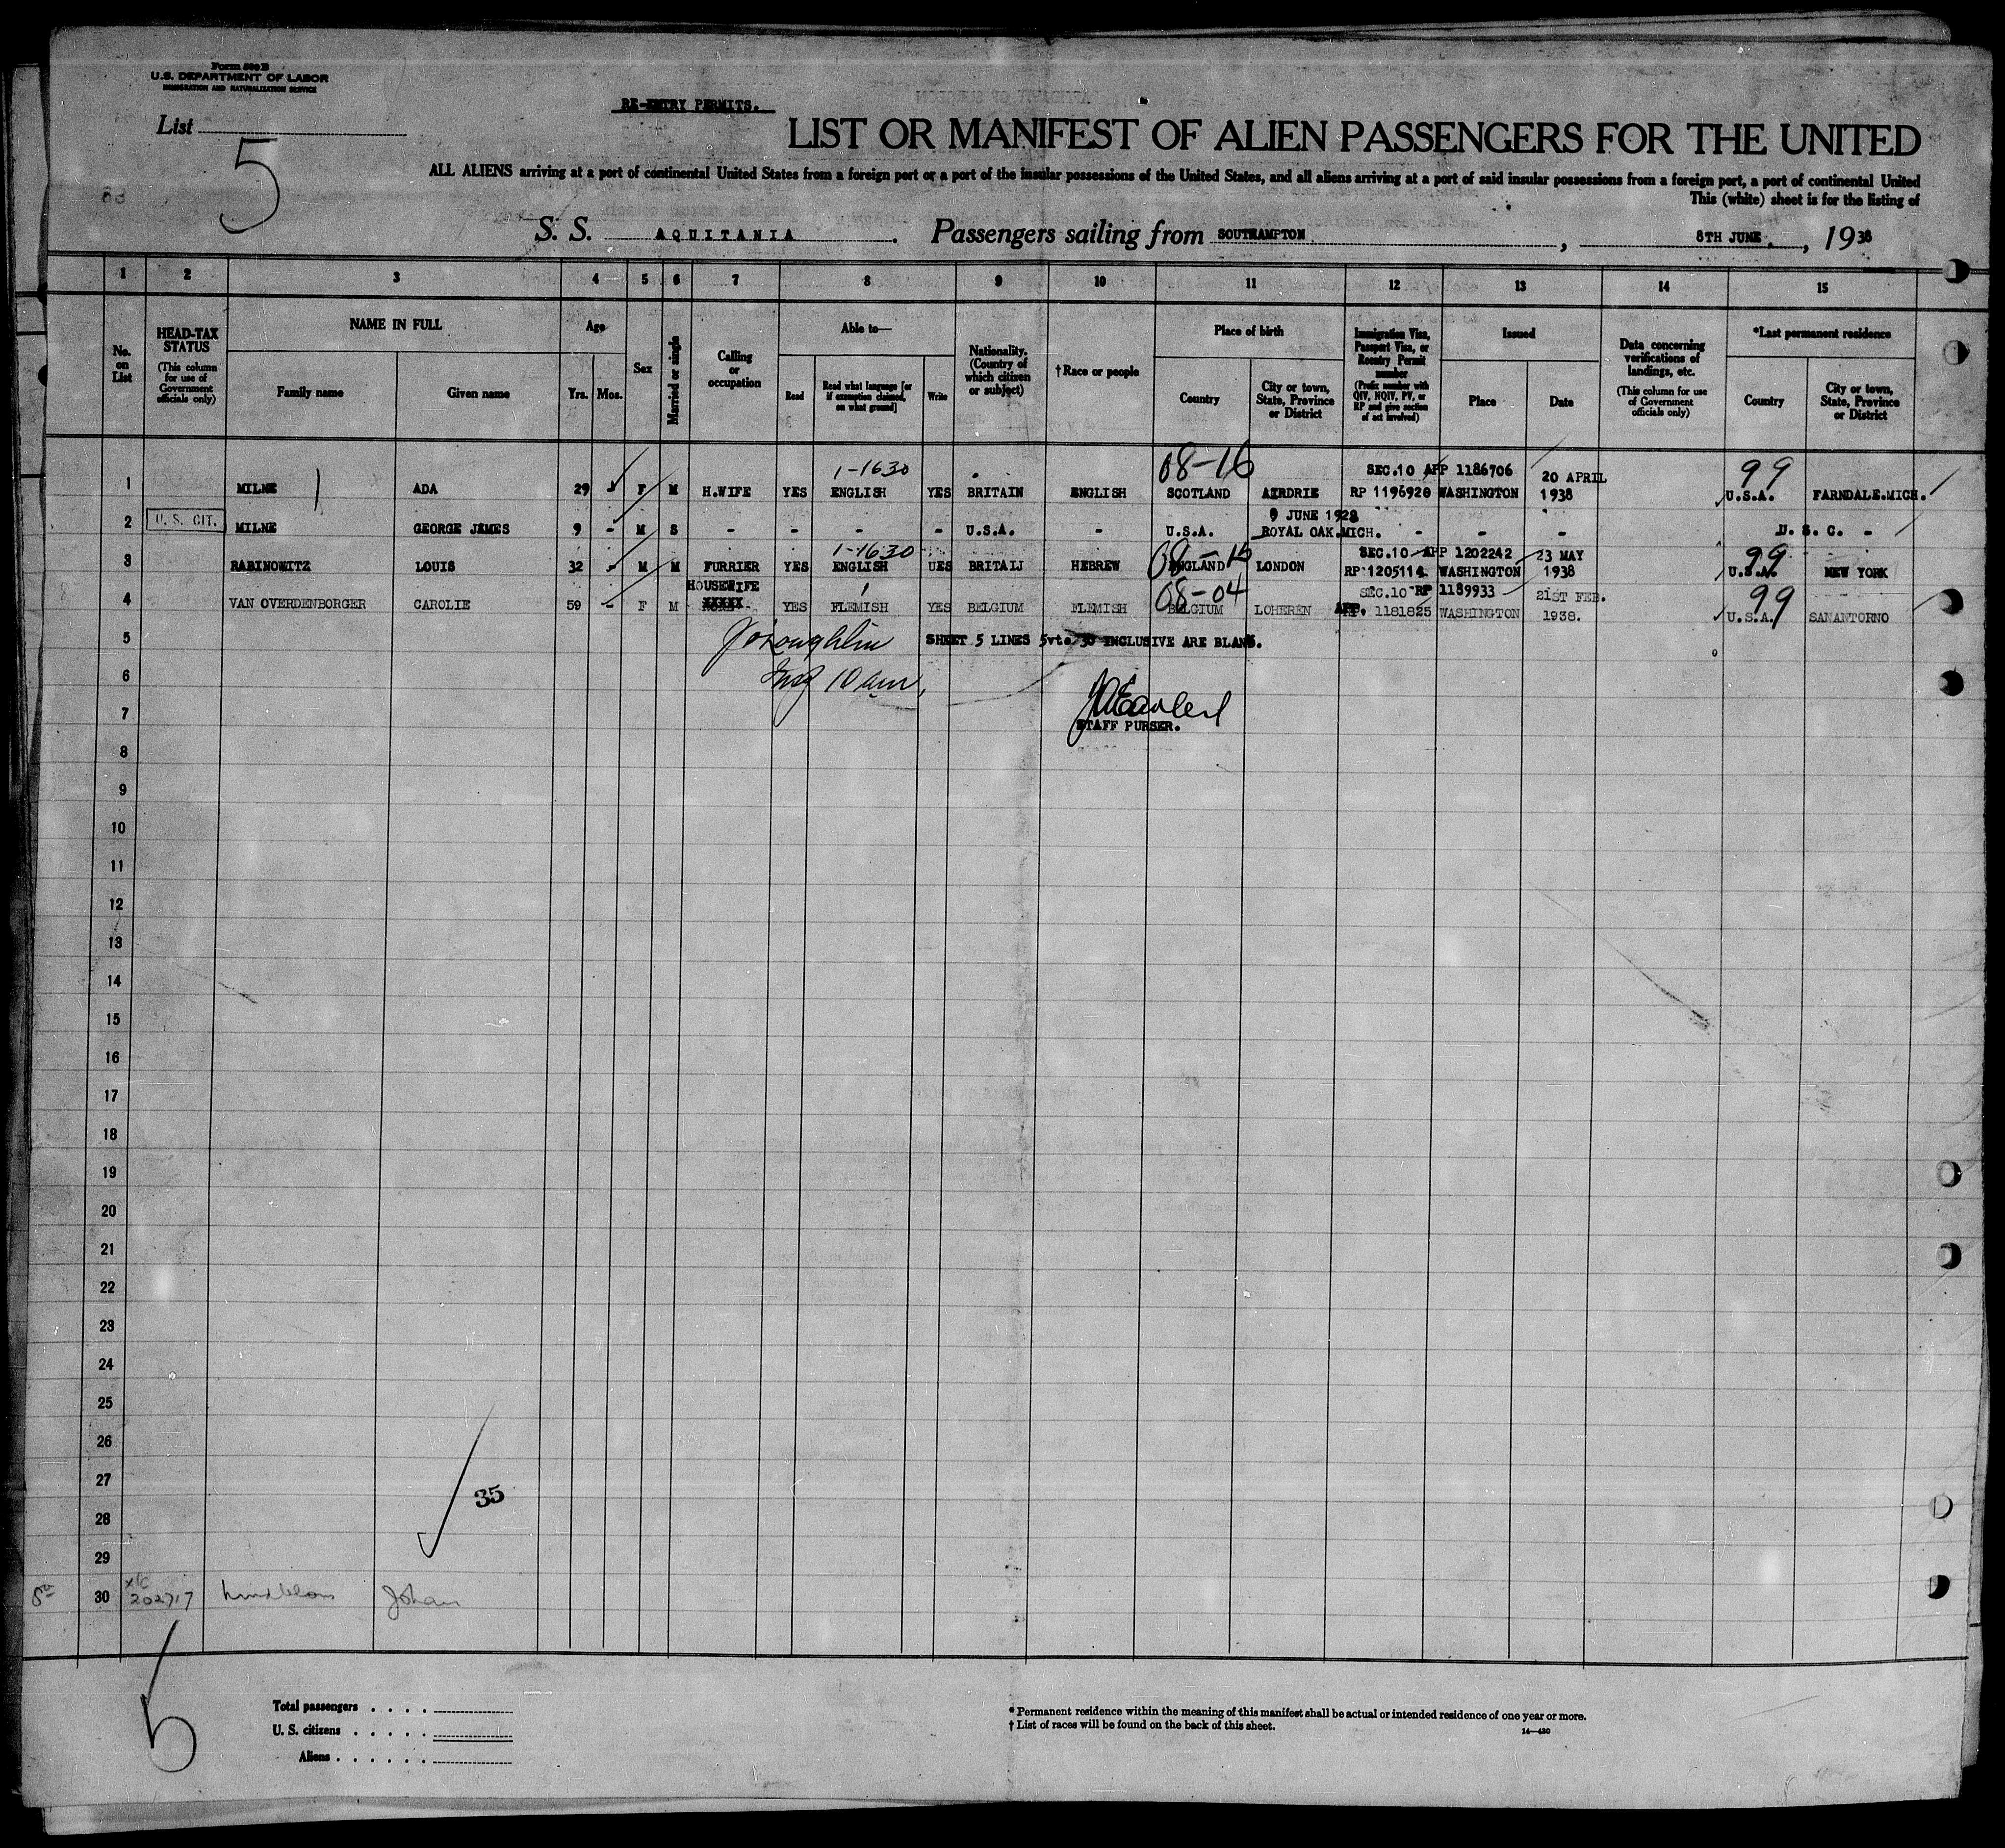 Form 500 B
U.S. DEPARTMENT OF LABOR
IMMIGRATION AND NATURALIZATION SERVICE
RE-ENTRY PERMITS.
List
5
LIST OR MANIFEST OF ALIEN PASSENGERS FOR THE UNITED
ALL ALIENS arriving at a port of continental United States from a foreign port or a port of the insular possessions of the United States, and all aliens arriving at a port of said insular possessions from a foreign port, a port of continental United
This (white) sheet is for the listing of
S. S. AQUITANIA. Passengers sailing from SOUTHAMPTON, 8TH JUNE, 1938
1 2 3 4 5 6 7 8 9 10 11 12 13 14 15
No. on List
HEAD-TAX STATUS (This column for use of Government officials only)
NAME IN FULL
Family name Given name
Age
Yrs. Mos.
Sex
Married or single
Calling or occupation
Able to—
Read Read what language [or if exemption claimed, on what ground] Write
Nationality. (Country of which citizen or subject)
†Race or people
Place of birth
Country City or town, State, Province or District
Immigration Visa, Passport Visa, or Reentry Permit number (Prefix number with QIV, NQIV, PV, or RP and give section of act involved)
Issued
Place Date
Data concerning verifications of landings, etc. (This column for use of Government officials only)
*Last permanent residence
Country City or town, State, Province or District
1-1630 08-16 SEC.10 APP 1186706 20 APRIL 99
1 MILNE ADA 29 - F M H.WIFE YES ENGLISH YES BRITAIN ENGLISH SCOTLAND AIRDRIE RP 1196920 WASHINGTON 1938 U.S.A. FARNDALE.MICH.
9 JUNE 1928
2 U. S. CIT. MILNE GEORGE JAMES 9 - M S - - - - U.S.A. - U.S.A. ROYAL OAK.MICH. - - - U. S. C. -
1-1630 08-16 SEC.10 APP 1202242 23 MAY 99
3 RABINOWITZ LOUIS 32 - M M FURRIER YES ENGLISH UES BRITAIJ HEBREW ENGLAND LONDON RP 1205114 WASHINGTON 1938 U.S.A. NEW YORK
HOUSEWIFE 08-04 SEC.10 RP 1189933 21ST FEB. 99
4 VAN OVERDENBORGER CAROLIE 59 - F M XXXXX YES FLEMISH YES BELGIUM FLEMISH BELGIUM LOHEREN APP. 1181825 WASHINGTON 1938. U.S.A. SANANTORNO
5 SHEET 5 LINES 5vto 30 INCLUSIVE ARE BLANK.
6
7 STAFF PURSER.
8
9
10
11
12
13
14
15
16
17
18
19
20
21
22
23
24
25
26
27
35
28
29
30 202717 Johan
5
Total passengers . . . .
U. S. citizens . . . . .
Aliens . . . . . .
* Permanent residence within the meaning of this manifest shall be actual or intended residence of one year or more.
† List of races will be found on the back of this sheet.
14—430